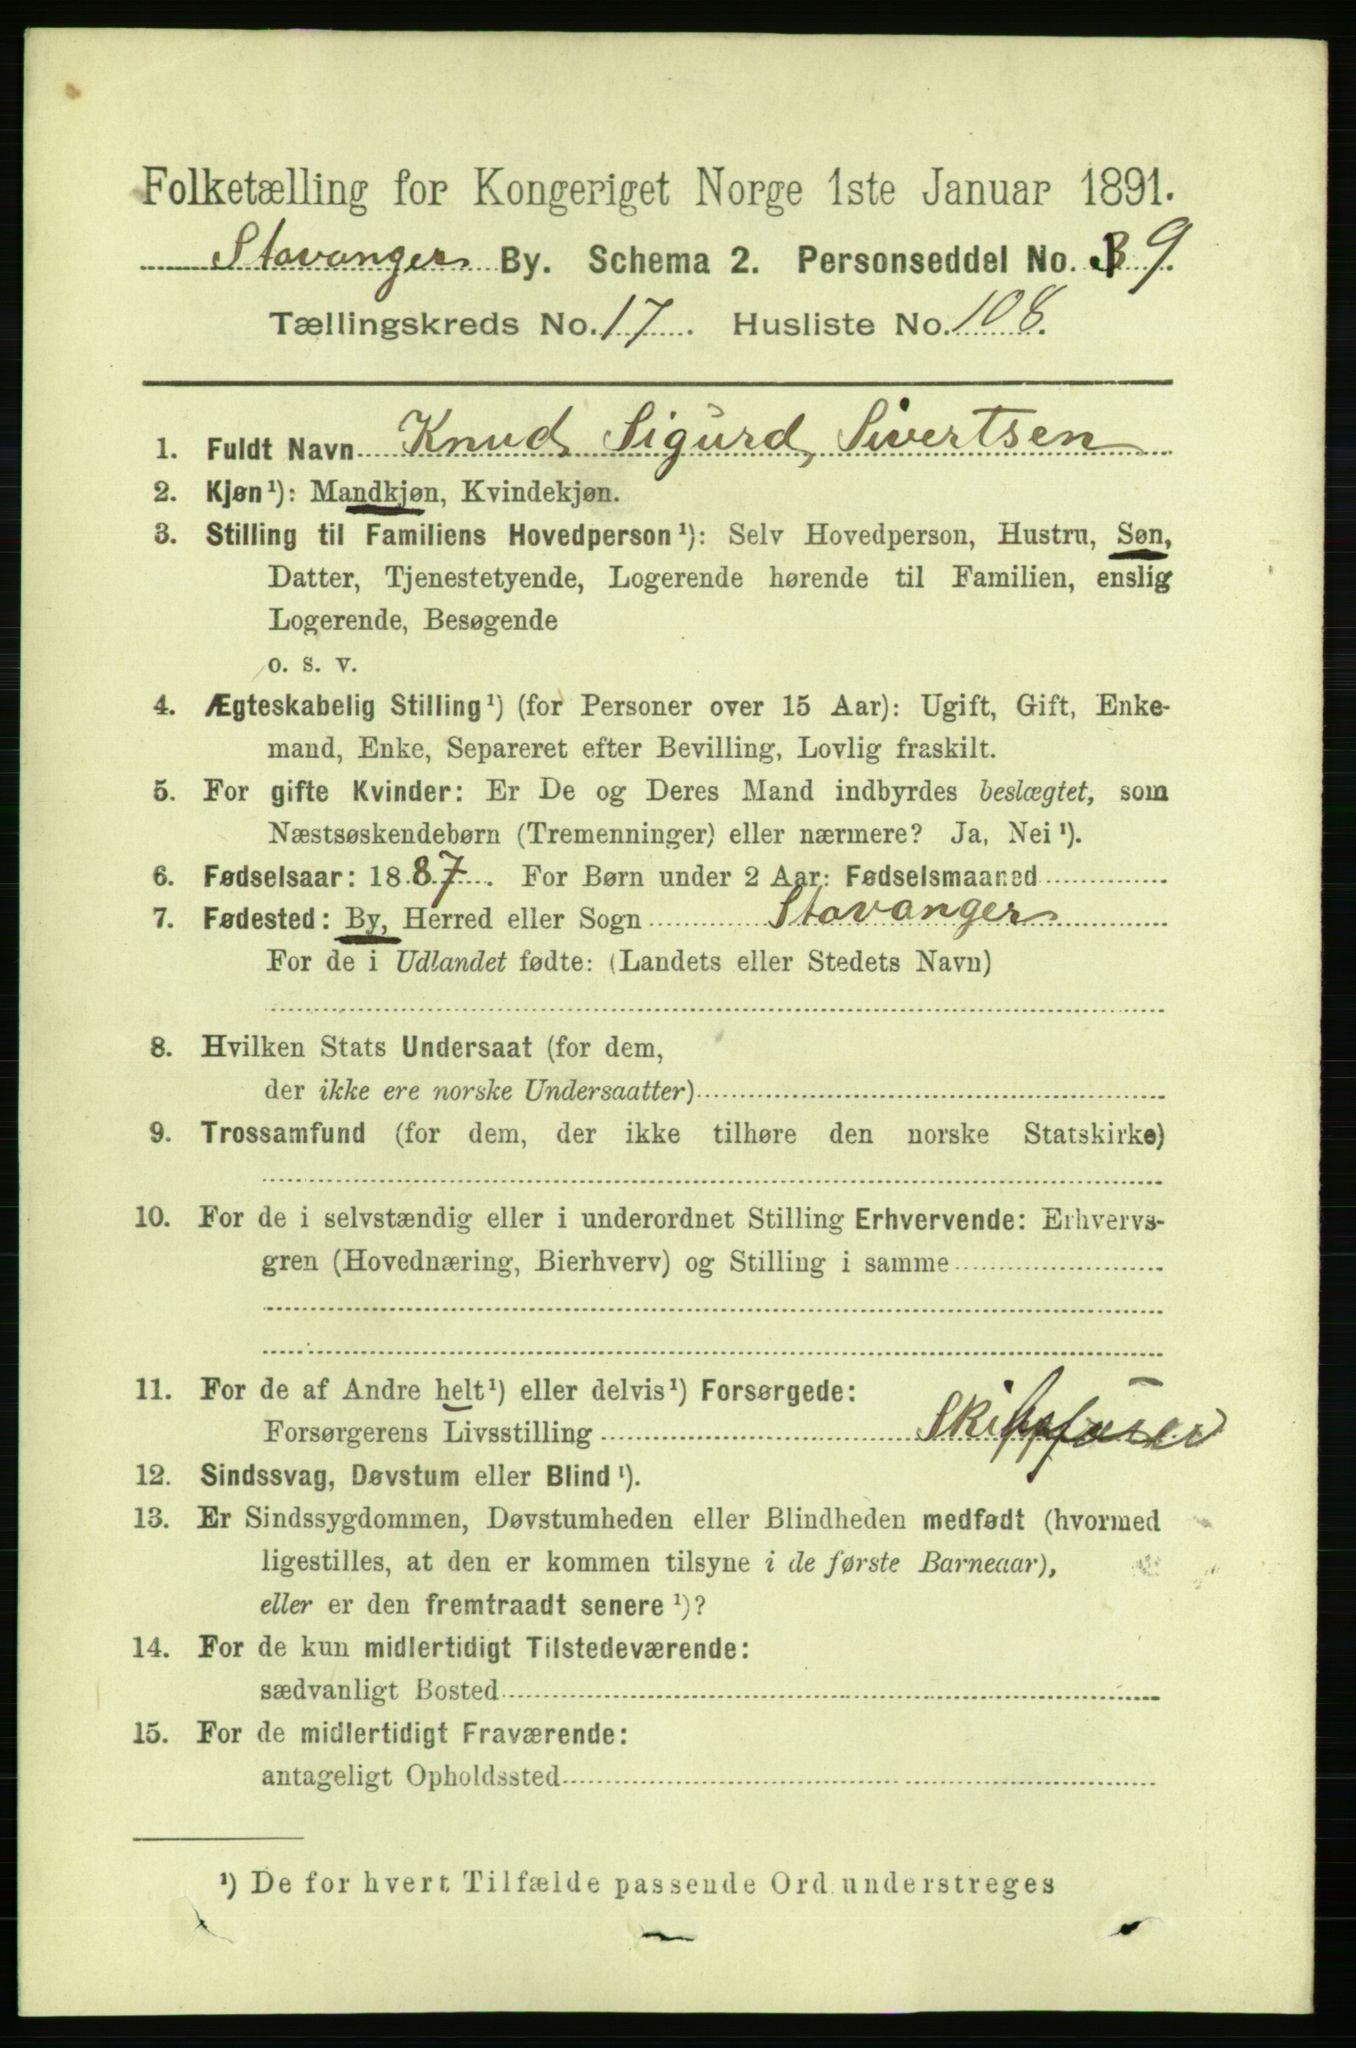 Folketælling for Kongeriget Norge 1ste Januar 1891.
Stavanger By. Schema 2. Personseddel No. 9.
Tællingskreds No. 17. Husliste No. 108.
1. Fuldt Navn Knud Sigurd Sivertsen
2. Kjøn¹): Mandkjøn, Kvindekjøn.
3. Stilling til Familiens Hovedperson¹): Selv Hovedperson, Hustru, Søn,
Datter, Tjenestetyende, Logerende hørende til Familien, enslig
Logerende, Besøgende
o. s. v.
4. Ægteskabelig Stilling¹) (for Personer over 15 Aar): Ugift, Gift, Enke-
mand, Enke, Separeret efter Bevilling, Lovlig fraskilt.
5. For gifte Kvinder: Er De og Deres Mand indbyrdes beslægtet, som
Næstsøskendebørn (Tremenninger) eller nærmere? Ja, Nei¹).
6. Fødselsaar: 1887. For Børn under 2 Aar: Fødselsmaaned
7. Fødested: By, Herred eller Sogn Stavanger
For de i Udlandet fødte: (Landets eller Stedets Navn)
8. Hvilken Stats Undersaat (for dem,
der ikke ere norske Undersaatter)
9. Trossamfund (for dem, der ikke tilhøre den norske Statskirke)
10. For de i selvstændig eller i underordnet Stilling Erhvervende: Erhvervs-
gren (Hovednæring, Bierhverv) og Stilling i samme
11. For de af Andre helt¹) eller delvis¹) Forsørgede:
Forsørgerens Livsstilling Skibsfører
12. Sindssvag, Døvstum eller Blind¹).
13. Er Sindssygdommen, Døvstumheden eller Blindheden medfødt (hvormed
ligestilles, at den er kommen tilsyne i de første Barneaar),
eller er den fremtraadt senere¹)?
14. For de kun midlertidigt Tilstedeværende:
sædvanligt Bosted
15. For de midlertidigt Fraværende:
antageligt Opholdssted
¹) De for hvert Tilfælde passende Ord understreges